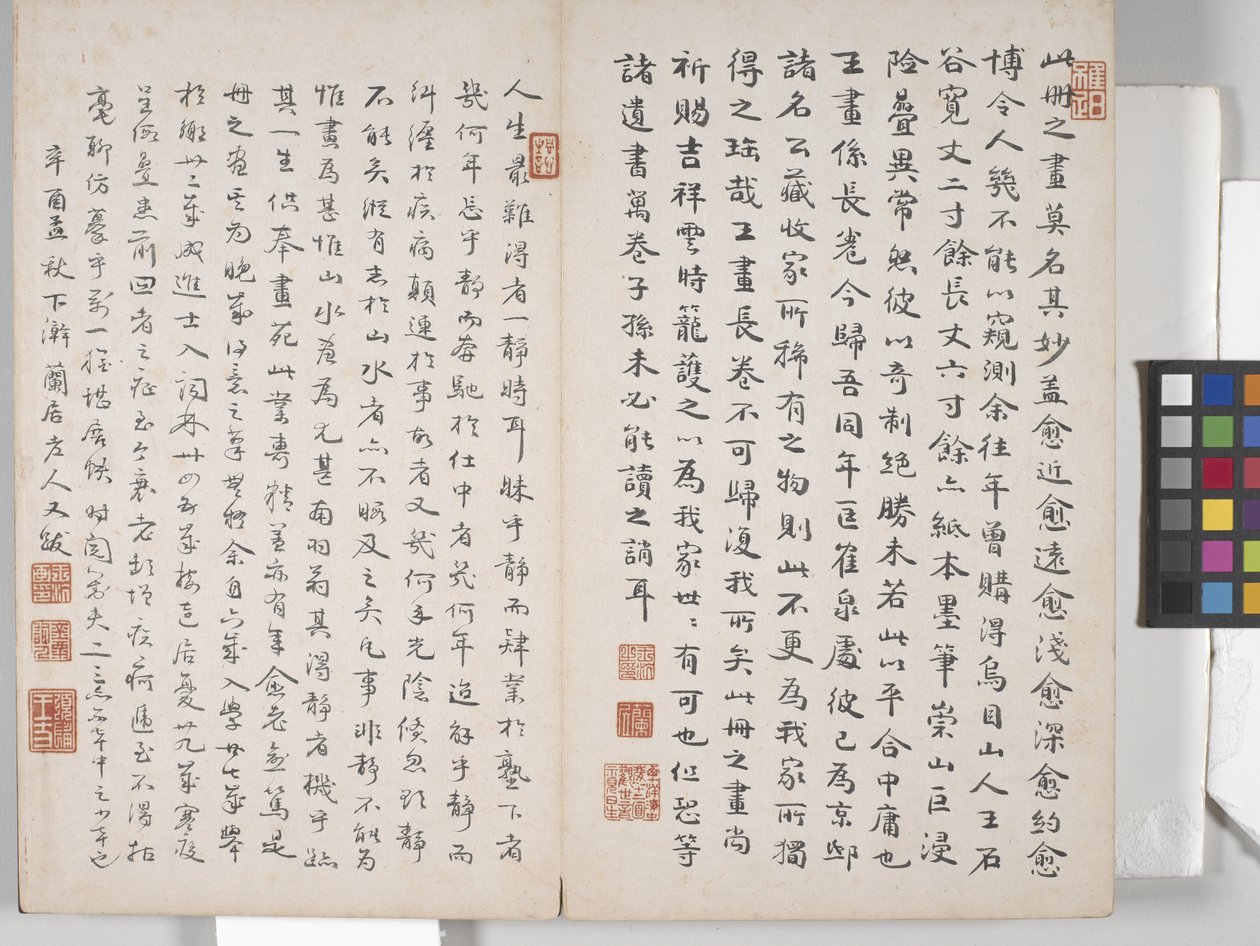 此冊之畫莫名其妙盖愈近愈遠愈淺愈深愈約愈
博令人幾不能以窺測余往年曾購得烏目山人王石
谷寬丈二寸餘長丈六寸餘亦紙本墨筆崇山巨浸
险疊異常然彼以奇制絕勝未若此以平合中庸也
王畫係長卷今歸吾同年匡寉泉處彼已為京邸
諸名公藏收家所稀有之物則此不更為我家所獨
得之珎哉王畫長卷不可歸復我所矣此冊之畫尚
祈賜吉祥雲時籠護之以為我家世〻有可也但恐等
諸遺書萬卷子孫未必能讀之誚耳
人生最難得者一靜時耳昧乎靜而肄業於塾下者
幾何年忘乎靜而奔馳於仕中者幾何年迨解乎靜而
糾纏於疾病顛連於事故者又幾何年光陰倏忽欲靜
不能矣縱有志於山水者亦不暇及之矣凡事非靜不能為
惟畫為甚惟山水畫為尤甚南羽翁其得靜者機乎跡
其一生供奉畫苑此業專精益亦有年愈老愈篤是
冊之畫定為晚歲得意之筆無疑余自六歲入學廿七歲舉
於鄉卅二歲成進士入詞林卅四五歲接連居憂卅九歲寒疫
呈似疊患前四者之症至今衰老歎增疾病迭至不得拈
毫聊仿摹乎前一
辛酉孟秋下澣蘭居老人又跋